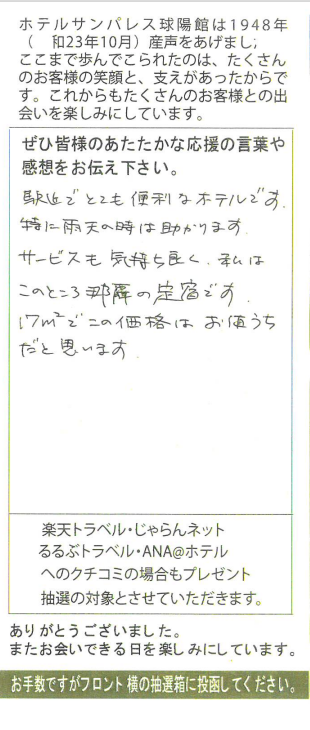 ホテルサンパレス球陽館は1948年
（　和23年10月）産声をあげまし;
ここまで歩んでこられたのは、たくさん
のお客様の笑顔と、支えがあったからで
す。これからもたくさんのお客様との出
会いを楽しみにしています。
ぜひ皆様のあたたかな応援の言葉や
感想をお伝え下さい。
駅近でとても便利なホテルです。
特に雨天の時は助かります。
サービスも気持ち良く、私は
このところ那覇の定宿です。
17m²でこの価格はお値うち
だと思います
楽天トラベル・じゃらんネット
るるぶトラベル・ANA@ホテル
へのクチコミの場合もプレゼント
抽選の対象とさせていただきます。
ありがとうございました。
またお会いできる日を楽しみにしています。
お手数ですがフロント横の抽選箱に投函してください。